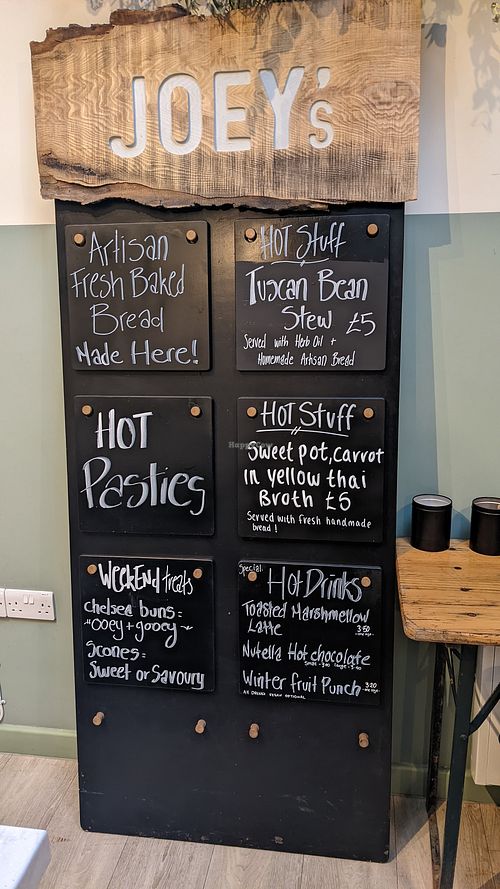 JOEY's
Artisan
Fresh Baked
Bread
Made Here!
HOT Stuff
Tuscan Bean
Stew £5
Served with Herb Oil +
Homemade Artisan Bread
HOT
Pasties
HOT Stuff
Sweet pot, carrot
in yellow thai
Broth £5
Served with fresh handmade
bread!
WeekEnd treats
chelsea buns:
"ooey + gooey"
Scones:
Sweet or Savoury
Special
Hot Drinks
Toasted Marshmellow
Latte 3.50
Nutella Hot chocolate
Winter fruit Punch 3.20
All drinks vegan optional
HappyCow